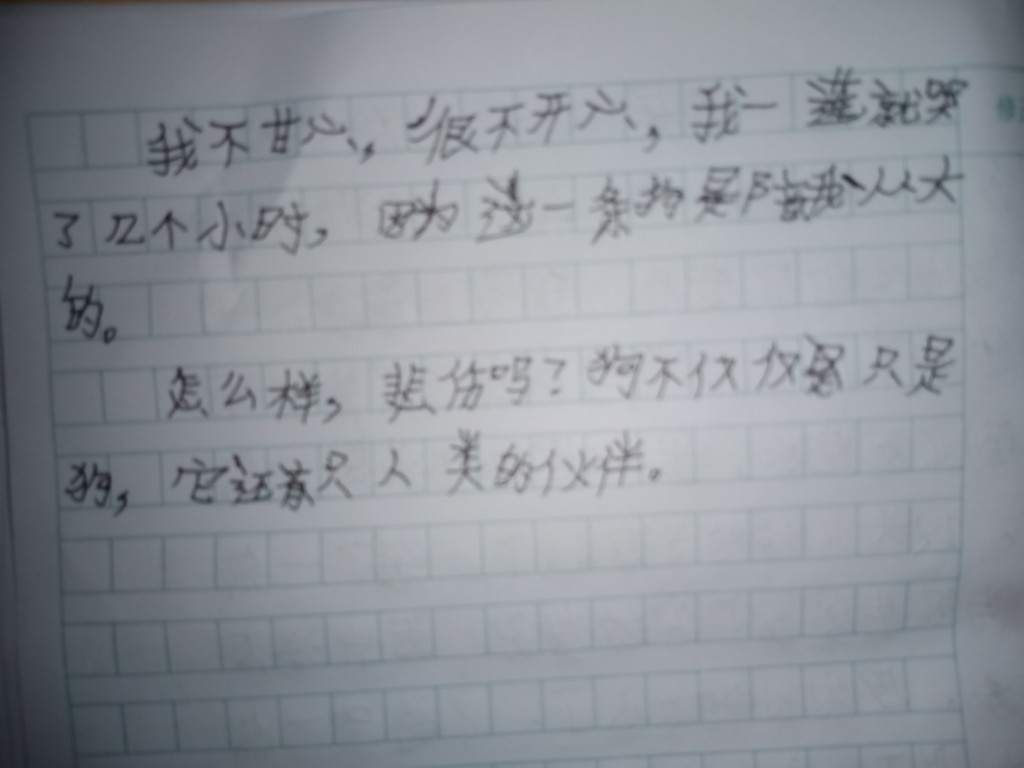 我不甘心，很不开心，我一连就哭
了几个小时，因为这一条狗是陪我从大
的。
怎么样，悲伤吗？狗不仅仅是只是
狗，它还是只人类的伙伴。